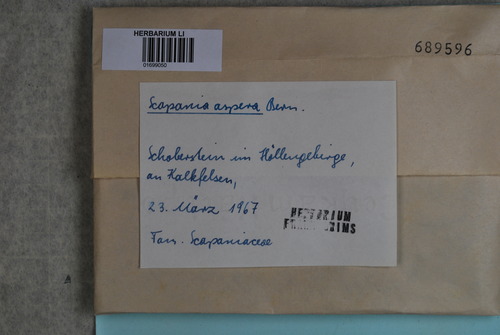 HERBARIUM LI
01699050
689596
Scapania aspera Bern.
Schoberstein im Höllengebirge,
an Kalkfelsen,
23. März 1967
HERBARIUM
Fam. Scapaniaceae